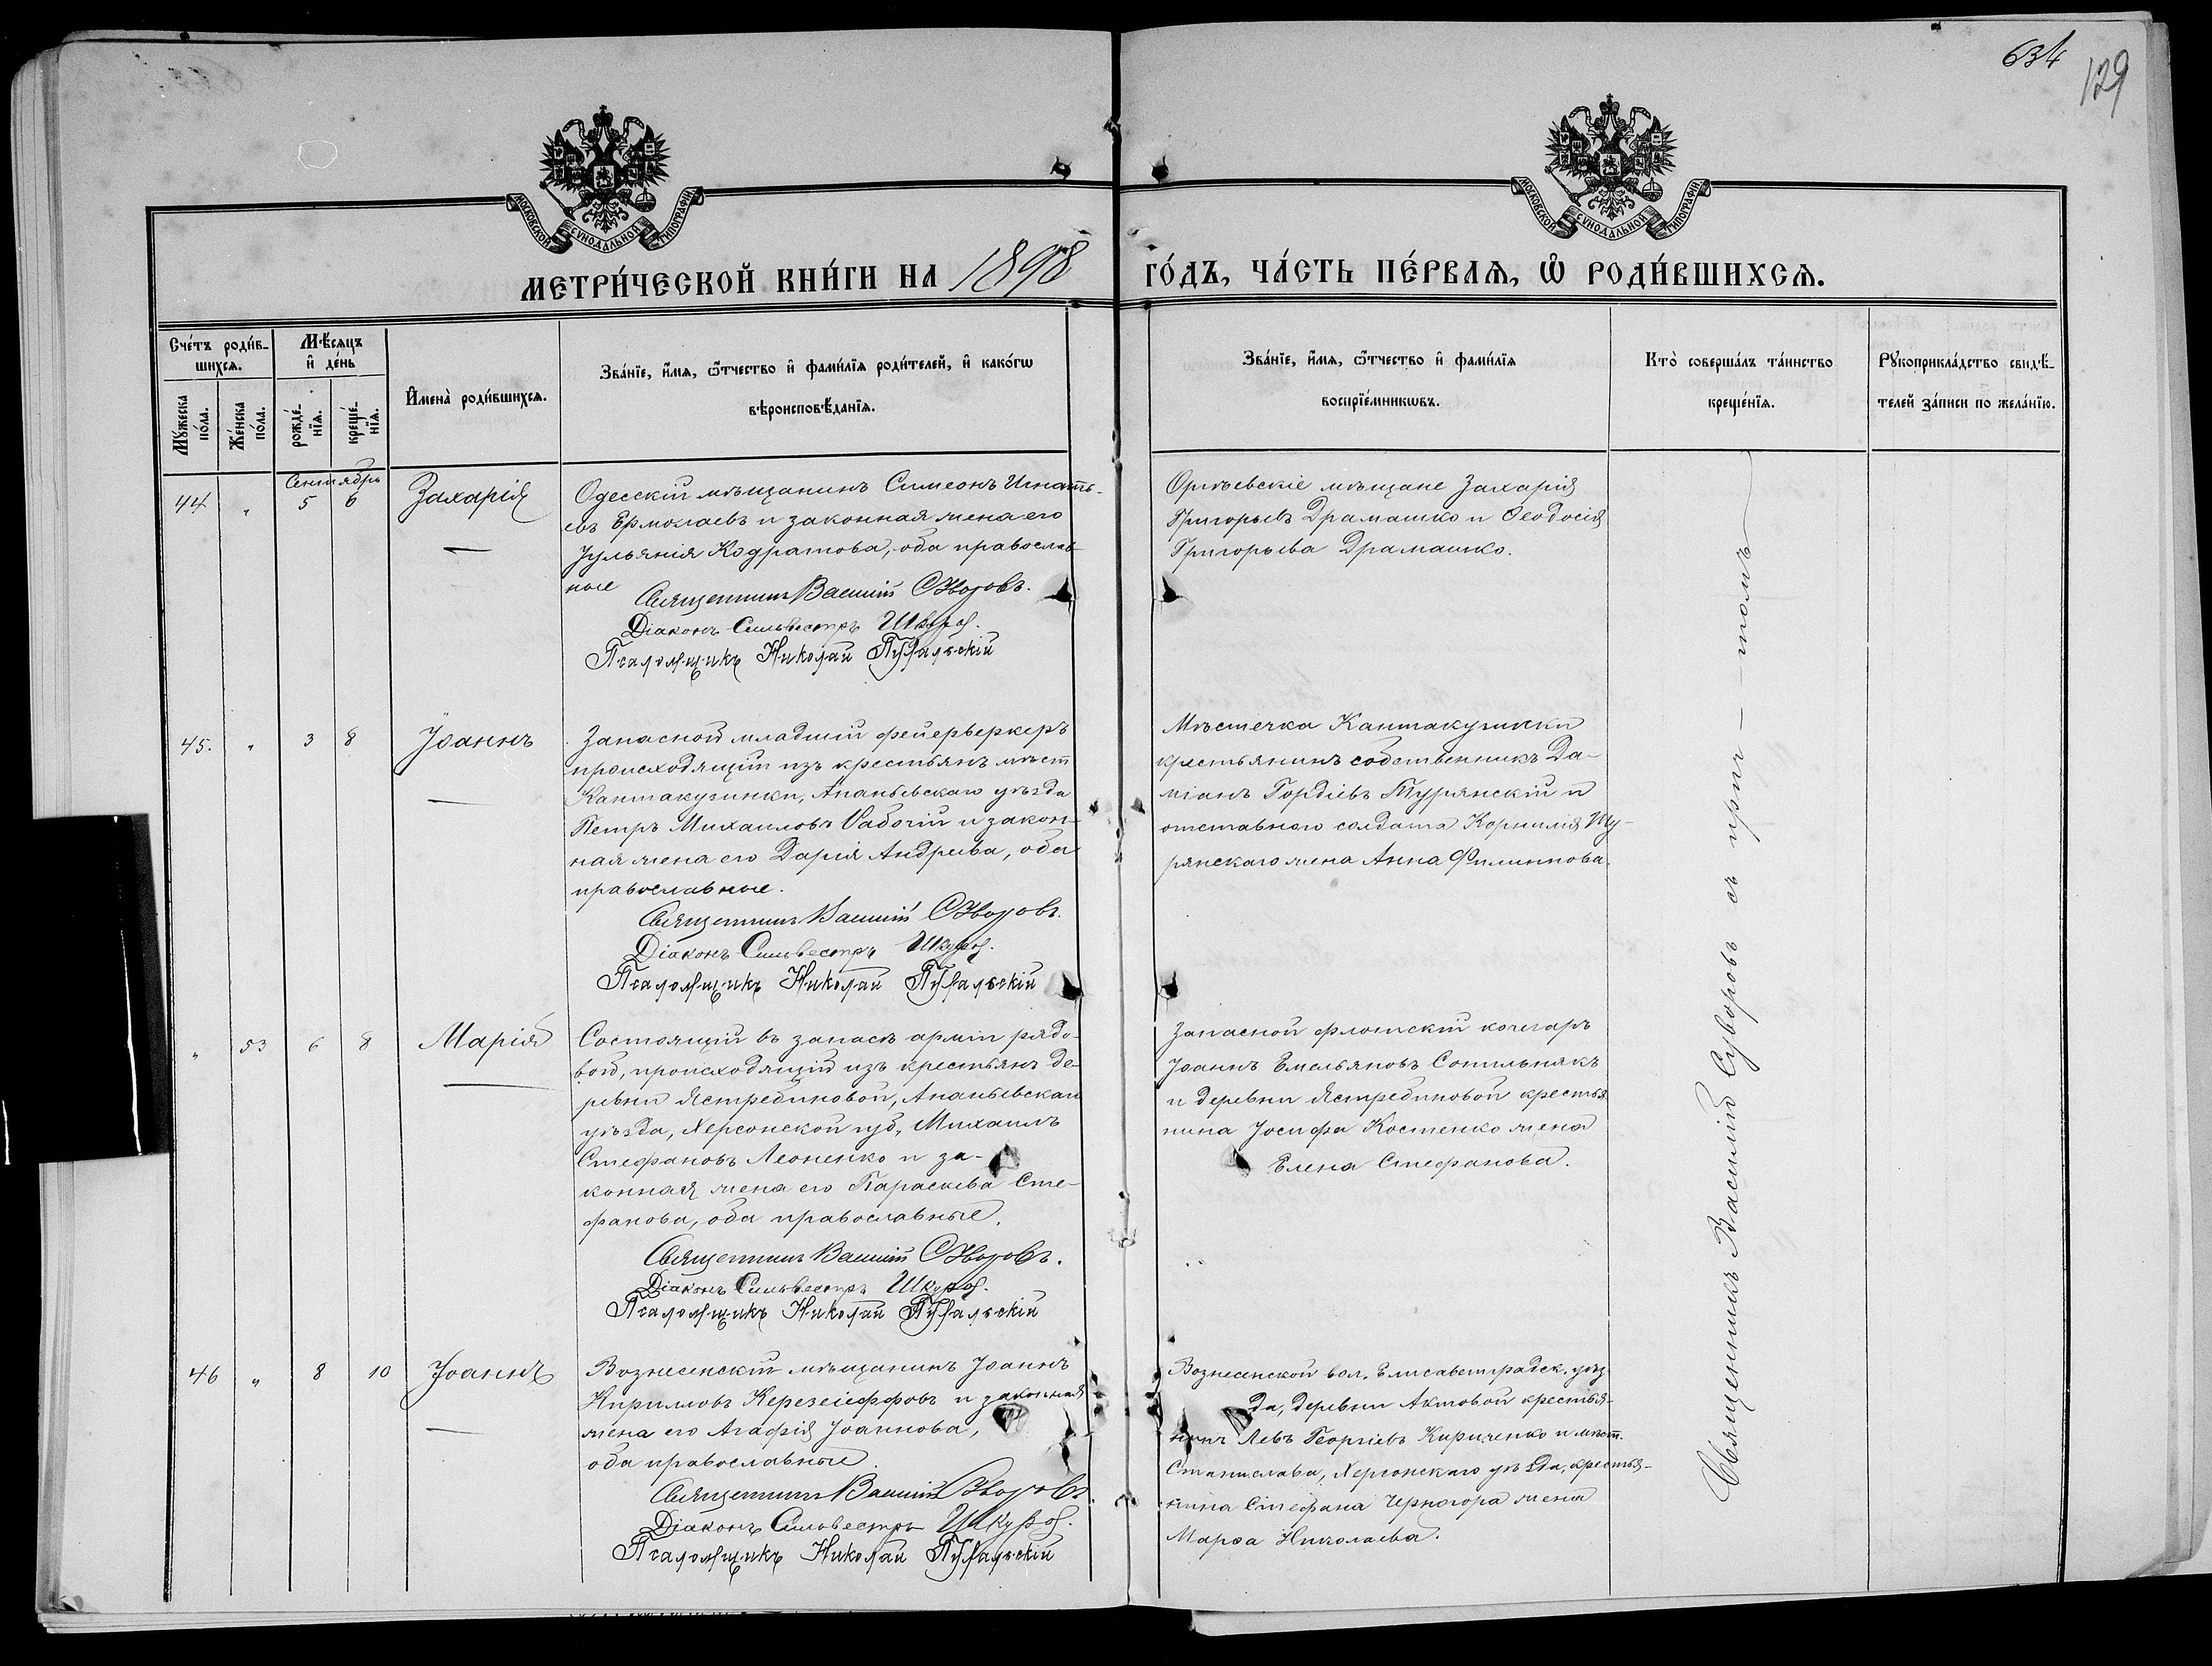 634
129
МОСКОВСКОЙ СѴНОДАЛЬНОЙ ТИПОГРАФІИ
МОСКОВСКОЙ СѴНОДАЛЬНОЙ ТИПОГРАФІИ
МЕТРИ́ЧЕСКОЙ КНИ́ГИ НА 1898 ГО́ДЪ, ЧА́СТЬ ПЕ́РВАѦ, Ѡ҆ РОДИ́ВШИХСѦ.
Сче́тъ роди́в-
шихсѧ.
Мꙋ́жеска по́ла.
Же́нска по́ла.
Мѣ́сѧцъ
и҆ де́нь
рожде́-
нїѧ.
креще́-
нїѧ.
И҆мена̀ роди́вшихсѧ.
Зва́нїе, и҆́мѧ, ѻ҆́тчество и҆ фами́лїѧ роди́телей, и҆ како́гѡ
вѣроисповѣ́данїѧ.
Зва́нїе, и҆́мѧ, ѻ҆́тчество и҆ фами́лїѧ
воспрїе́мникѡвъ.
Кто̀ соверша́лъ та́инство
креще́нїѧ.
Рꙋкоприкла́дство свидѣ́-
телей за́писи по жела́нїю.
Сентябрь
44 „ 5 6 Захарія
Одесскій мѣщанинъ Симеонъ Игнать-
евъ Ермолаевъ и законная жена его
Іульянія Кодратова, оба православ-
ные
Священникъ Василій Суворовъ.
Діаконъ Сильвестръ
Псаломщикъ Николай
Оргѣевскіе мѣщане Захарія
Григорьевъ Драмашко и Ѳеодосія
Григорьева Драмашко.
45. „ 3 8 Іоаннъ
Запасной младшій фейерверкеръ
происходящій изъ крестьянъ мѣст
Кантакузинки, Ананьевскаго уѣзда
Петръ Михаиловъ Рабочій и закон-
ная жена его Дарія Андреева, оба
православные.
Священникъ Василій Суворовъ.
Діаконъ Сильвестръ
Псаломщикъ Николай
Мѣстечка Кантакузинки
крестьянинъ собственникъ Да-
міанъ Гордіевъ Турянскій и
отставного солдата Корнилія Ту-
рянскаго жена Анна Филиппова.
„ 53 6 8 Марія
Состоящій въ запасѣ арміи рядо-
вой, происходящій изъ крестьянъ де-
ревни Ястребиновой, Ананьевскаго
уѣзда, Херсонской губ, Михаилъ
Стефановъ Леоненко и за-
конная жена его Параскева Сте-
фанова, оба православные.
Священникъ Василій Суворовъ.
Діаконъ Сильвестръ
Псаломщикъ Николай
Запасной флотскій кочегаръ
Іоаннъ Емельяновъ Сопильнякъ
и деревни Ястребиновой крестья
нина Іосифа Костенко жена
Елена Стефанова.
46 „ 8 10 Іоаннъ
Вознесенскій мѣщанинъ Іоаннъ
Кирилловъ и законная
жена его Агафія Іоаннова,
оба православные.
Священникъ Василій Суворовъ.
Діаконъ Сильвестръ
Псаломщикъ Николай
Вознесенской вол. Елисаветградск. уѣз
да, деревни Актовой крестья-
нинъ Левъ Георгіевъ Кириченко и мѣст.
Станислава, Херсонскаго уѣзда, крестья-
нина Стефана Черногора жена
Марѳа Николаева.
Священникъ Василій Суворовъ съ прич — томъ